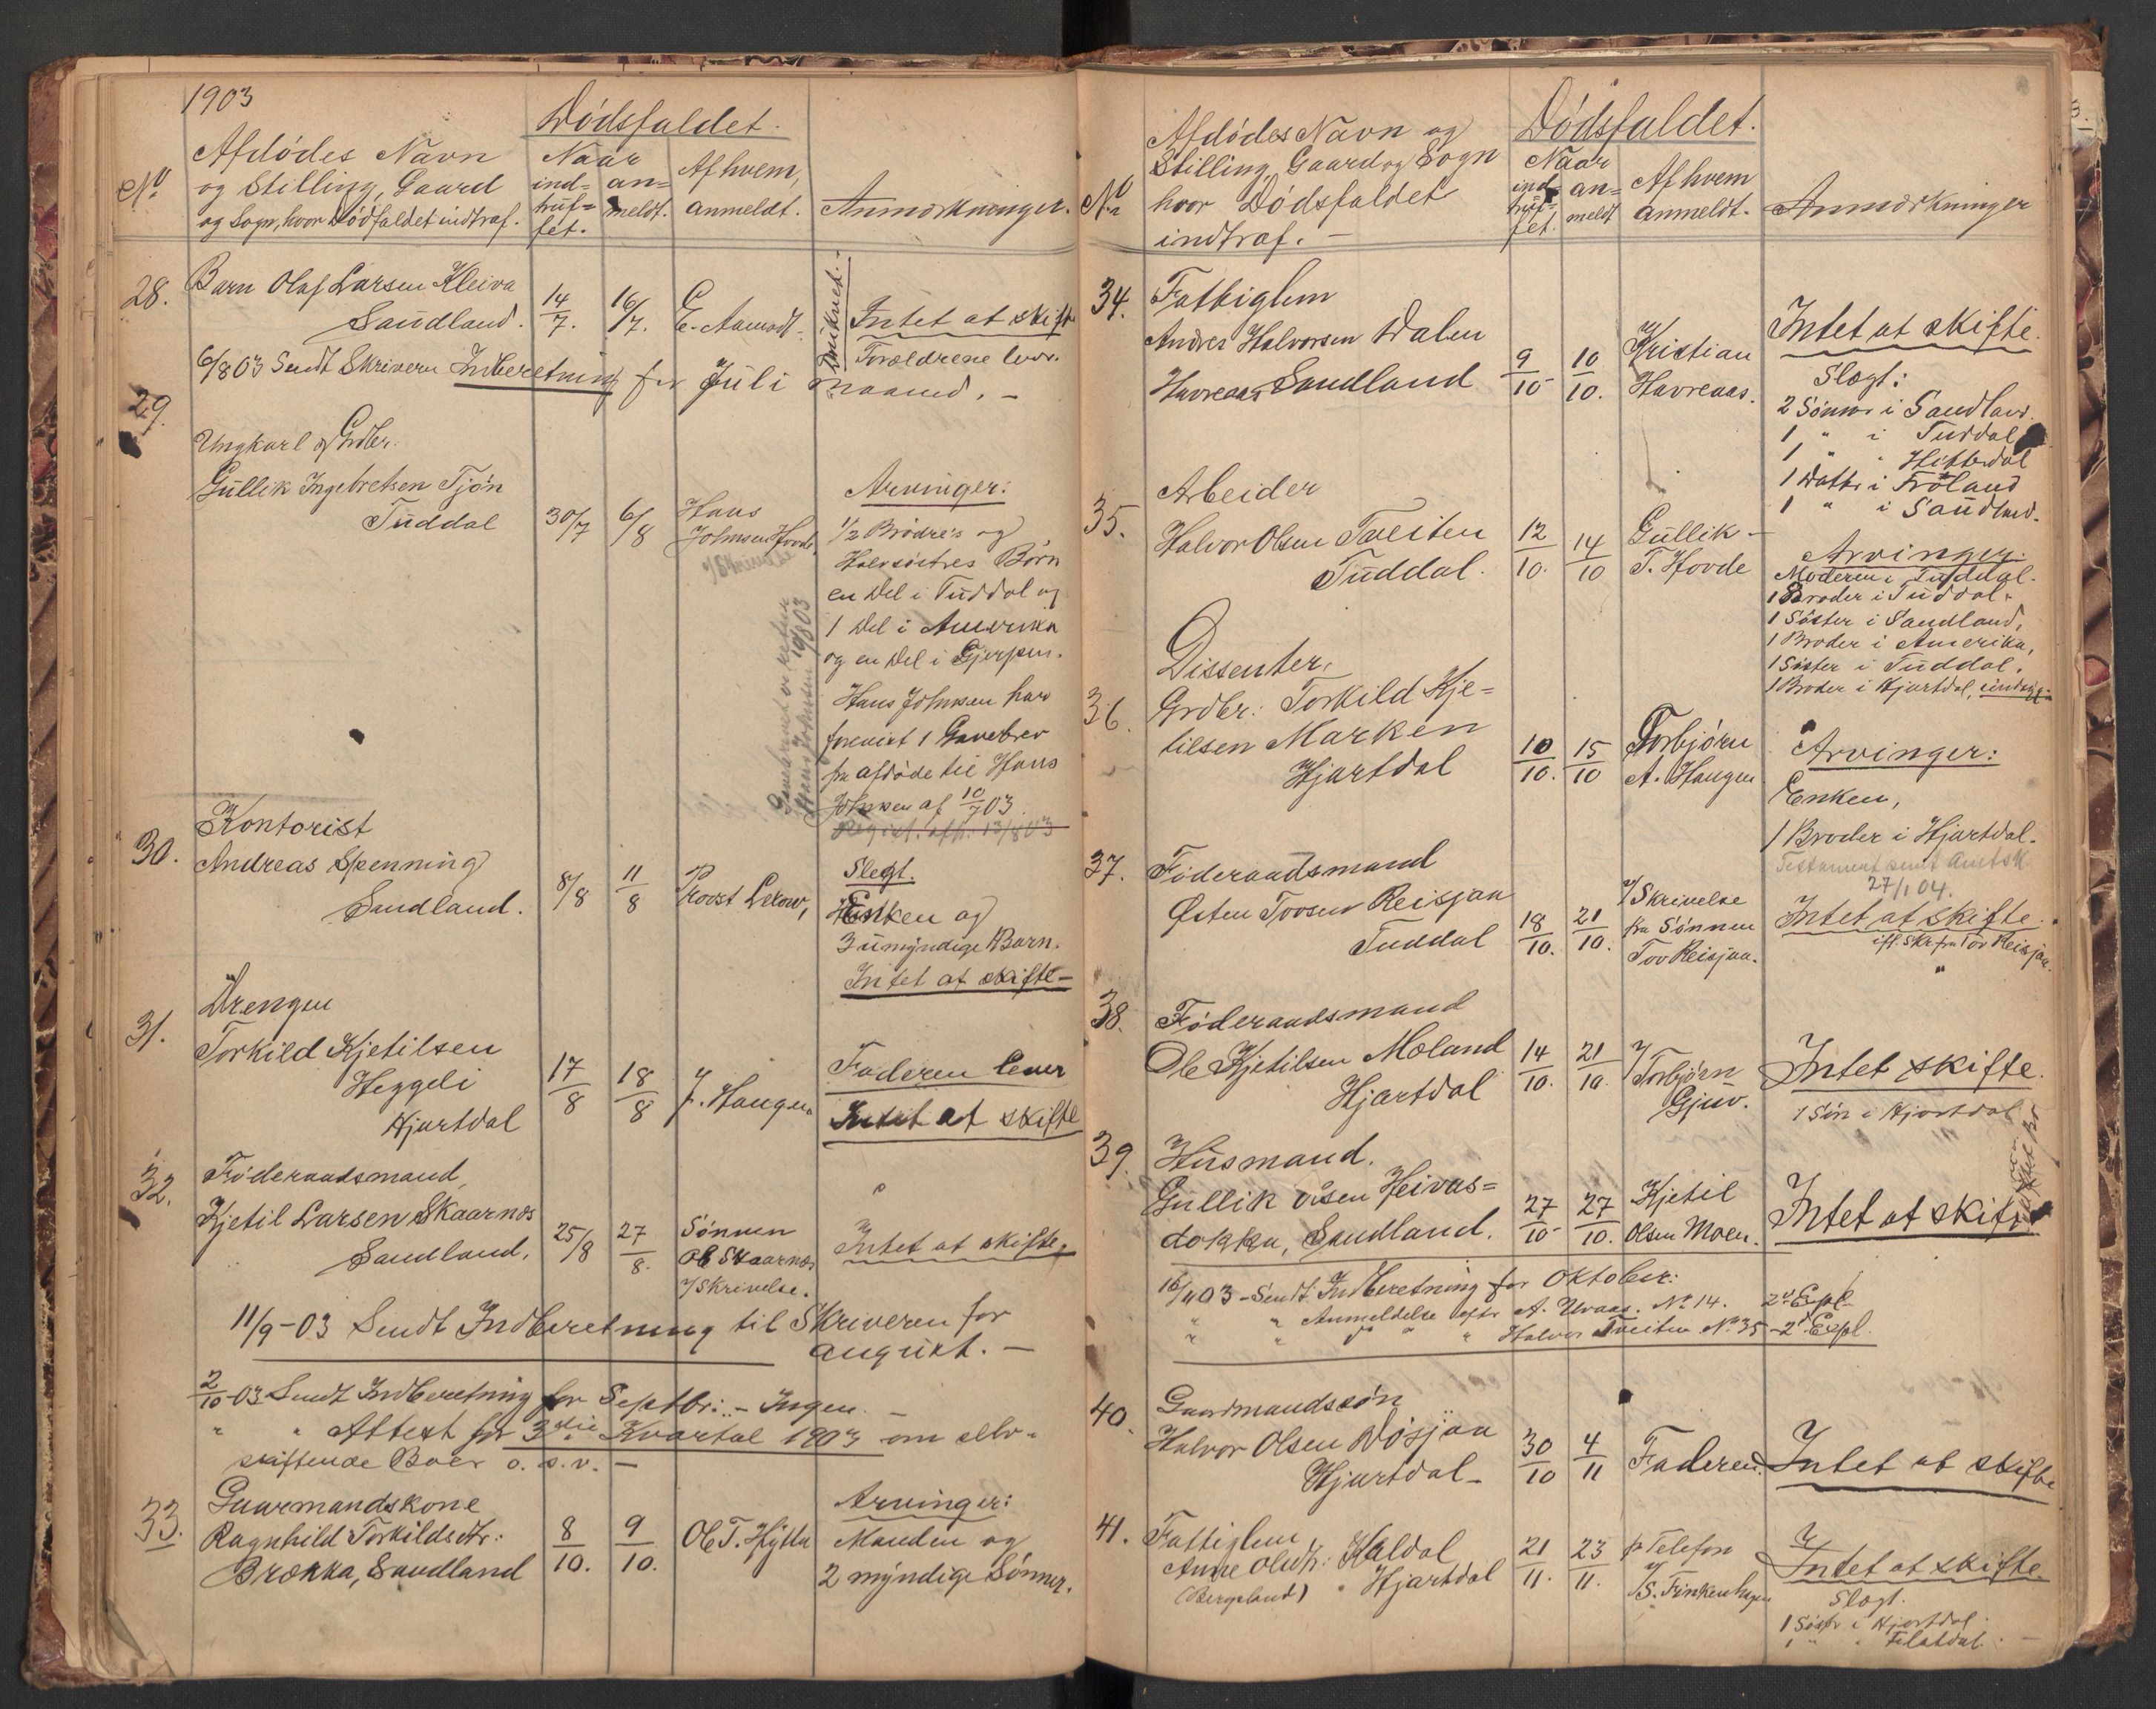 1903
Dødsfaldet.
No.
Afdødes Navn
og Stilling, Gaard
og Sogn, hvor Dødsfaldet indtraf.
Naar
ind=
truf=
fet.
an=
meldt.
Af hvem,
anmeldt.
Anmærkninger.
28.
Barn Olaf Larsen Kleiva
Saudland.
14/7.
16/7.
E. Aamodt.
Intet at skift
Forældrene lever.
6/8 03 Sendt Skriveren Indberetning for Juli Maaned. –
29.
Ungkarl & Grdbr.
Gullik Ingebretsen Tjøn
Tuddal
30/7
6/8
Hans
Johnsen Hovde.
Arvinger:
1/2 Brødre's og
Halvsøstres Børn
en Del i Tuddal og
1 Del i Amerika
og en Del i Gjerpen.
Hans Johnsen har
forevist 1 Gavebrev
fra afdøde til Hans
Johnsen af 10/7 03.
Hans Johnsen 19/8 03
30.
Kontorist
Andreas Spenning
Saudland.
8/8
11/8
Provst Lexow,
Slegt.
Enken og
3 umyndige Barn.
Intet at skifte –
31.
Drengen
Torkild Kjetilsen
Heggeli
Hjartdal
17/8
18/8
J. Haugen
Faderen lever
Intet at skifte
32.
Føderaadsmand,
Kjetil Larsen Skaarnæs
Saudland.
25/8
27/8.
Sønnen
Ole Skaarnæs
v/ Skrivelse.
Intet at skifte.
11/9-03 Sendt Indberetning til Skriveren for
August. –
2/10-03 Sendt Indberetning for Septbr: – Ingen. –
" " Attest for 3die Kvartal 1903 om selv-
skiftende Boer o. s. v. –
33.
Gaarmandskone
Ragnhild Torkildsdtr:
Brækka, Saudland
8/10.
9/10.
Ole T. Hytta
Arvinger:
Manden og
2 myndige Sønner.
Dødsfaldet.
No.
Afdødes Navn og
Stilling, Gaard og Sogn
hvor Dødsfaldet
indtraf. –
Naar
ind=
truf=
fet.
an=
meldt
Af hvem
anmeldt.
Anmærkninger
34.
Fattiglem
Andres Halvorsen Dalen
Havreaas Saudland
9/10
10/10.
Kristian
Havreaas.
Intet at skifte.
Slægt:
2 Sønner i Saudland.
1 " i Tuddal
1 " " Hitterdal
1 Datter i Froland
1 " i Saudland.
35.
Arbeider
Halvor Olsen Tveiten
Tuddal.
12/10.
14/10
Gullik
T. Hovde
Arvinger.
Moderen i Tuddal.
1 Broder i Tuddal.
1 Søster i Saudland,
1 Broder i Amerika,
1 Søster i Tuddal.
1 Broder i Hjartdal,
36.
Dissenter,
Grdbr: Torkild Kje=
tilsen Marken
Hjartdal
10/10.
15/10
Torbjørn
A. Haugen
Arvinger:
Enken,
1 Broder i Hjartdal.
Testament sendt Amtsk
27/1 04.
37.
Føderaadsmand
Østen Tovsen Reisjaa
Tuddal
18/10.
21/10.
v/ Skrivelse
fra Sønnen
Tov Reisjaa.
Intet at skifte.
ifl. Skr fra Tov Reisjaa.
38.
Føderaadsmand
Ole Kjetilsen Moland
Hjartdal
14/10.
21/10.
v/
Torbjørn
Gjuv.
Intet skifte.
1 Søn i Hjartdal
39.
Husmand.
Gullik Olsen Heivas=
dokka, Saudland.
27/10
27/10.
Kjetil
Olsen Moen.
Intet at skifte
16/11 03 – Sendt Indberetning for Oktober:
" " Anmeldelse efter A. Uvaas. No 14. 2d Expl.
" " " " " Halvor Tveiten No 35 – 2d Expl.
40.
Gaardmandssøn
Halvor Olsen Døsjaa
Hjartdal –
30/10
4/11
Faderen.
Intet at skifte
41.
Fattiglem
Anne Olsdtr: Haldal
(Bergeland) Hjartdal
21/11.
23/11.
pr Telefon
v/ S. Finkenhagen
Intet at skifte.
Slægt.
1 Søster i Hjartdal
1 " " Flatdal. –